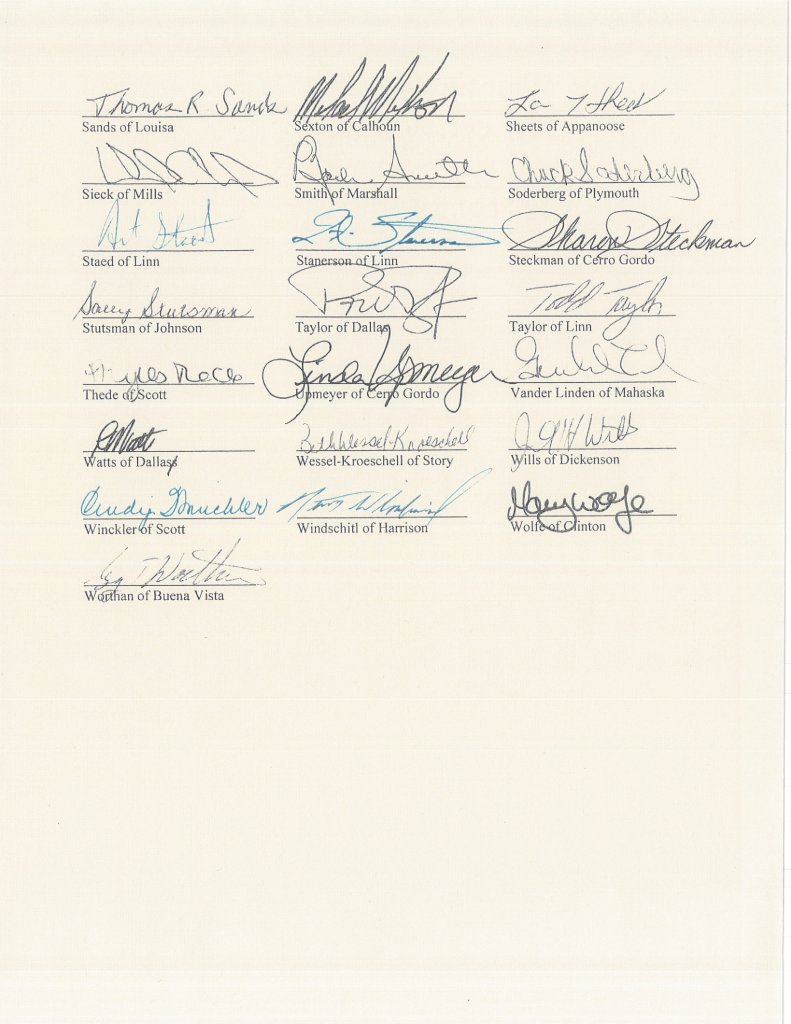 Thomas R Sands
Sands of Louisa Sexton of Calhoun Sheets of Appanoose
Smith Chuck Soderberg
Sieck of Mills Smith of Marshall Soderberg of Plymouth
Art Staed Sharon Steckman
Staed of Linn Stanerson of Linn Steckman of Cerro Gordo
Sally Stutsman Todd Taylor
Stutsman of Johnson Taylor of Dallas Taylor of Linn
Linda Upmeyer
Thede of Scott Upmeyer of Cerro Gordo Vander Linden of Mahaska
Beth Wessel-Kroeschell
Watts of Dallas Wessel-Kroeschell of Story Wills of Dickenson
Cindy Winckler Mary Wolfe
Winckler of Scott Windschitl of Harrison Wolfe of Clinton
Worthan of Buena Vista